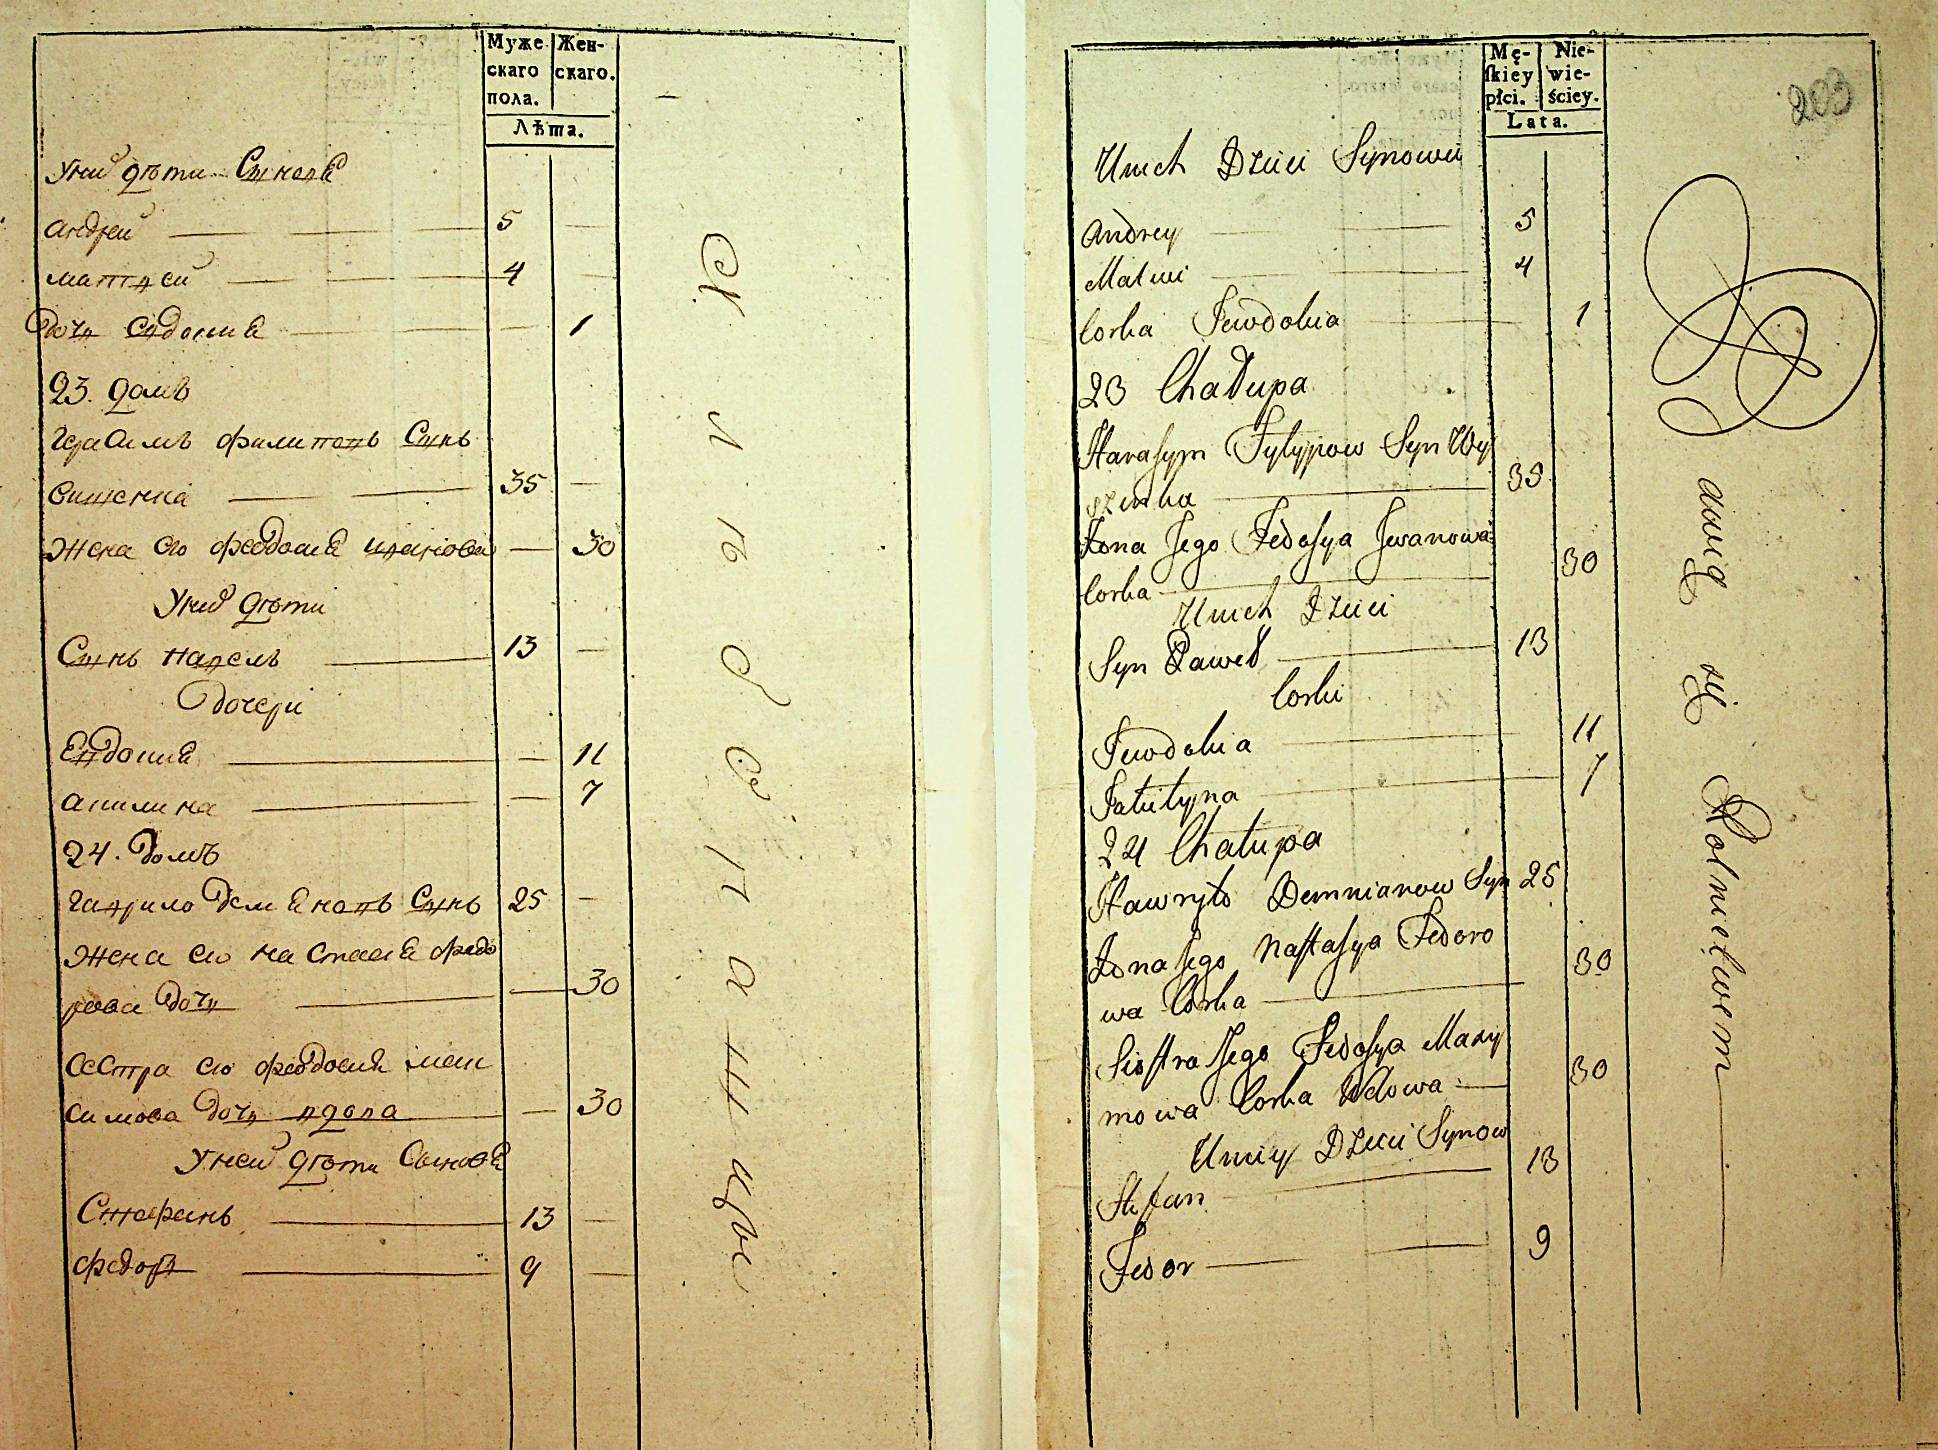 Муже Жен-
скаго скаго.
пола.
Лѣта.
Уних дѣти Синове
Андрей 5
Матвей 4
Дочь Евдокия 1
23. домъ
Герасимъ Филиповъ Синъ
35
Жена его Феодосия Иванова 30
Уних дѣти
Синъ Павелъ 13
Дочери
Евдокия 11
Акилина 7
24. Домъ
Гаврило Демяновъ Синъ 25
Жена его Настасия Федо
рова Дочь 30
Сестра его Феодосия Мак
симова Дочь вдова 30
Унеи дѣти Синове
Стефанъ 13
Федоръ 9
хлѣбопашцы
Mę- Nie-
ſkiey wie-
płci. ściey.
Lata.
203
Unich Dzieci Synowie
Andrey 5
Matwi 4
Corka Jewdokia 1
23 Chałupa
Harasym Fylypow Syn Wy
szenka 35
Żona Jego Fedosya Jwanowa
Corka 30
Unich Dzieci
Syn Paweł 13
Corki
Jewdokia 11
7
24 Chałupa
Hawryło Demnianow Syn 25
Żona Jego Nastasya Fedoro
wa Corka 30
Siostra Jego Fedosya Maxy
mowa Corka Wdowa 30
Uniey Dzieci Synow
Stefan 13
Fedor 9
bawią się Rolnictwem